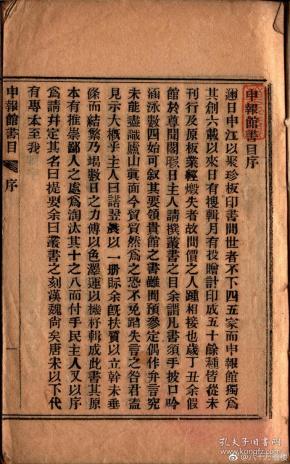 申報館書目序
邇日申江以聚珍板印書問世者不下四五家而申報館獨為
其創六載以來日有搜輯月有投贈計印成五十餘種皆從未
刊行及原板業經燬失者故問價之人踵相接也歲丁丑余假
館於尊聞閣暇日主人請撰叢書之目余謂凡書須手披口吟
涵泳數四始可敘其要領貴館之書雖間預參定偶作弁言究
未能盡識廬山真面今貿貿然為之恐不免貽失言之咎君盍
見示大概乎主人曰諾翌晨以一冊眎余既扶質以立幹未垂
條而結繁乃竭數日之力傅以色澤運以機杼輯成此書其原
本有推崇鄙人之處為淘汰其十之八而付手民主人又以序
為請并定其名曰提要余曰叢書之刻漢魏尚矣唐宋以下代
有專本至我
申報館書目
序
一
孔夫子旧书网